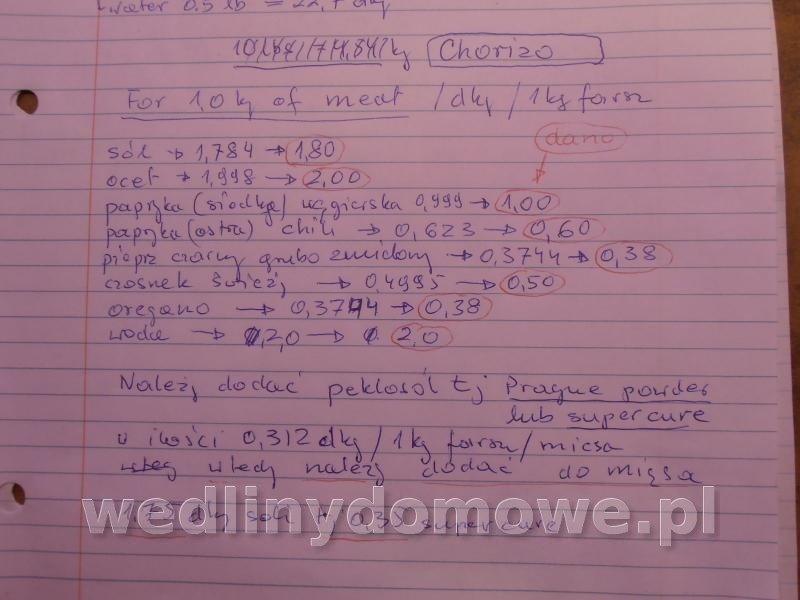 water 0.5 lb = 22,7 dkg
Chorizo
For 1,0 kg of meat /dkg/1kg farszu
dano
sól → 1,784 → 1,80
ocet → 1,998 → 2,00
papryka (słodka) węgierska 0,999 → 1,00
papryka (ostra) chili → 0,623 → 0,60
pieprz czarny grubo zmielony → 0,3744 → 0,38
czosnek świeży → 0,4995 → 0,50
oregano → 0,3744 → 0,38
woda → 2,0 → 2,0
Należy dodać peklosól tj Prague powder
lub supercure
w ilości 0,312 dkg/1kg farszu/mięsa
wtedy należy dodać do mięsa
1,75 dkg soli + 0,35 supercure
wedlinydomowe.pl